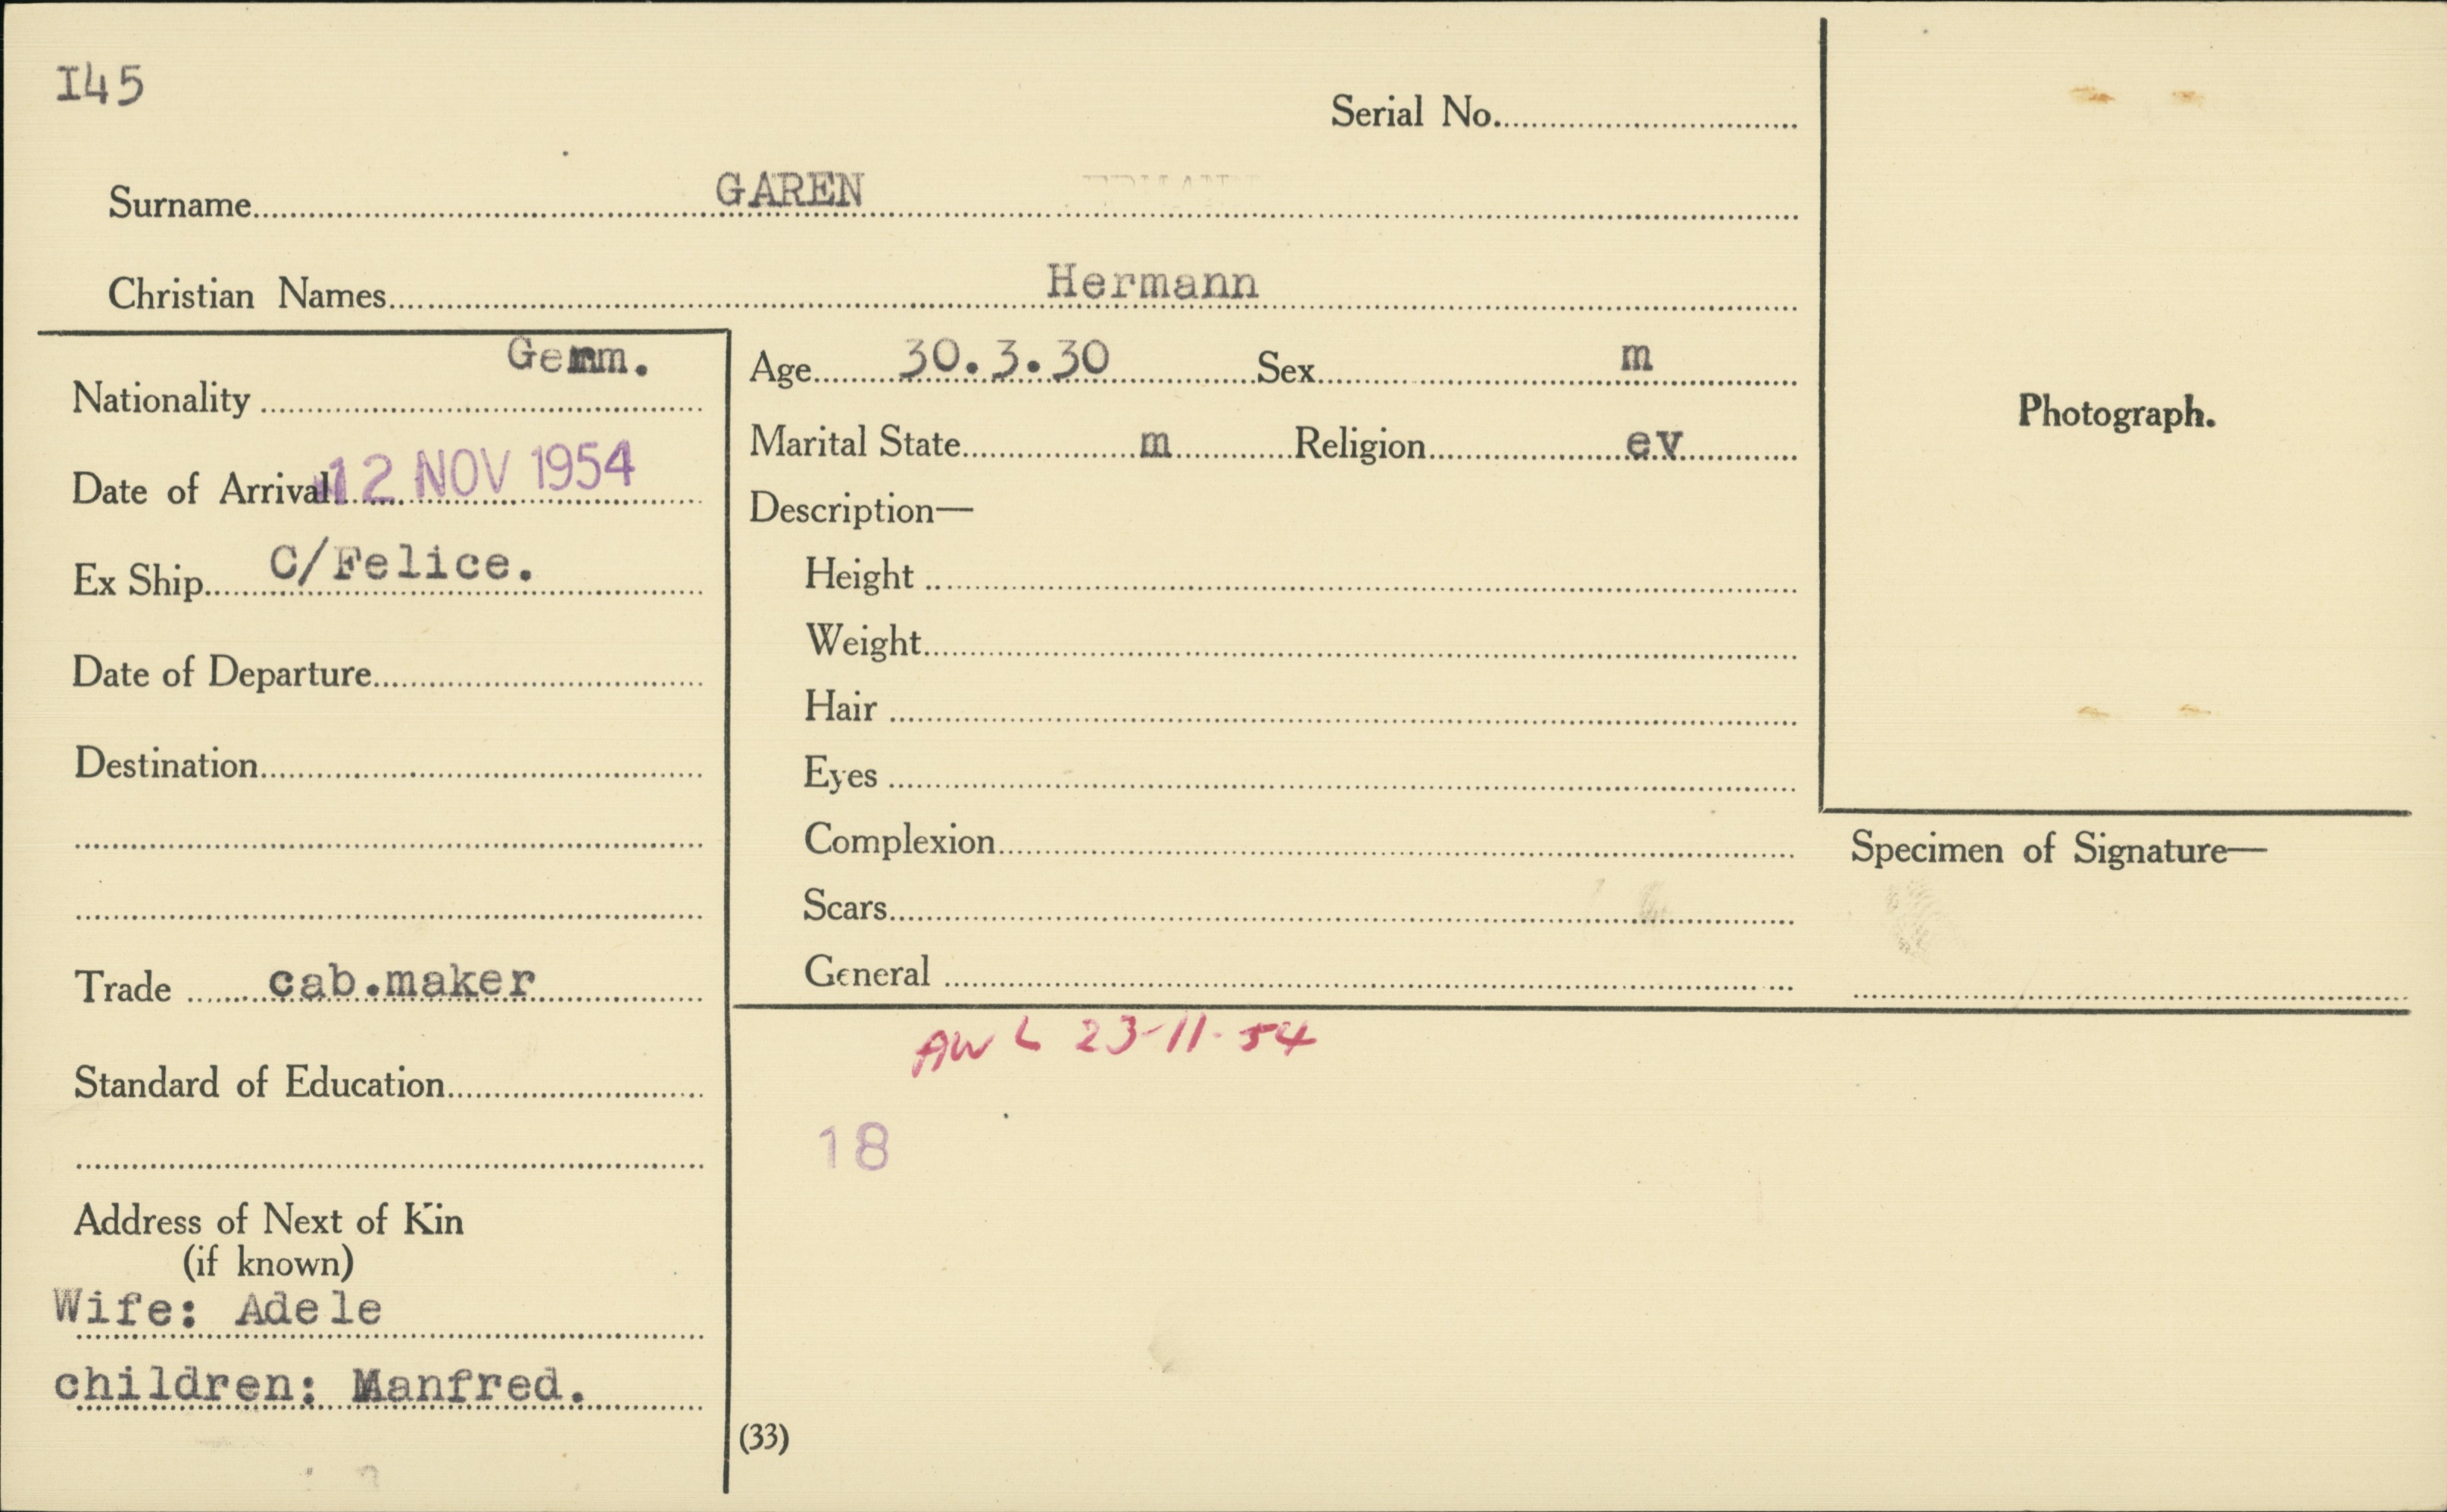 I45
Serial No.
Surname GAREN
Christian Names Hermann
Nationality Germ.
Date of Arrival 12 NOV 1954
Ex Ship C/Felice.
Date of Departure
Destination
Trade cab.maker
Standard of Education
Address of Next of Kin
(if known)
Wife: Adele
children: Manfred.
Age 30.3.30 Sex m
Marital State m Religion ev
Description—
Height
Weight
Hair
Eyes
Complexion
Scars
General
Photograph.
Specimen of Signature—
AWL 23-11-54
18
(33)